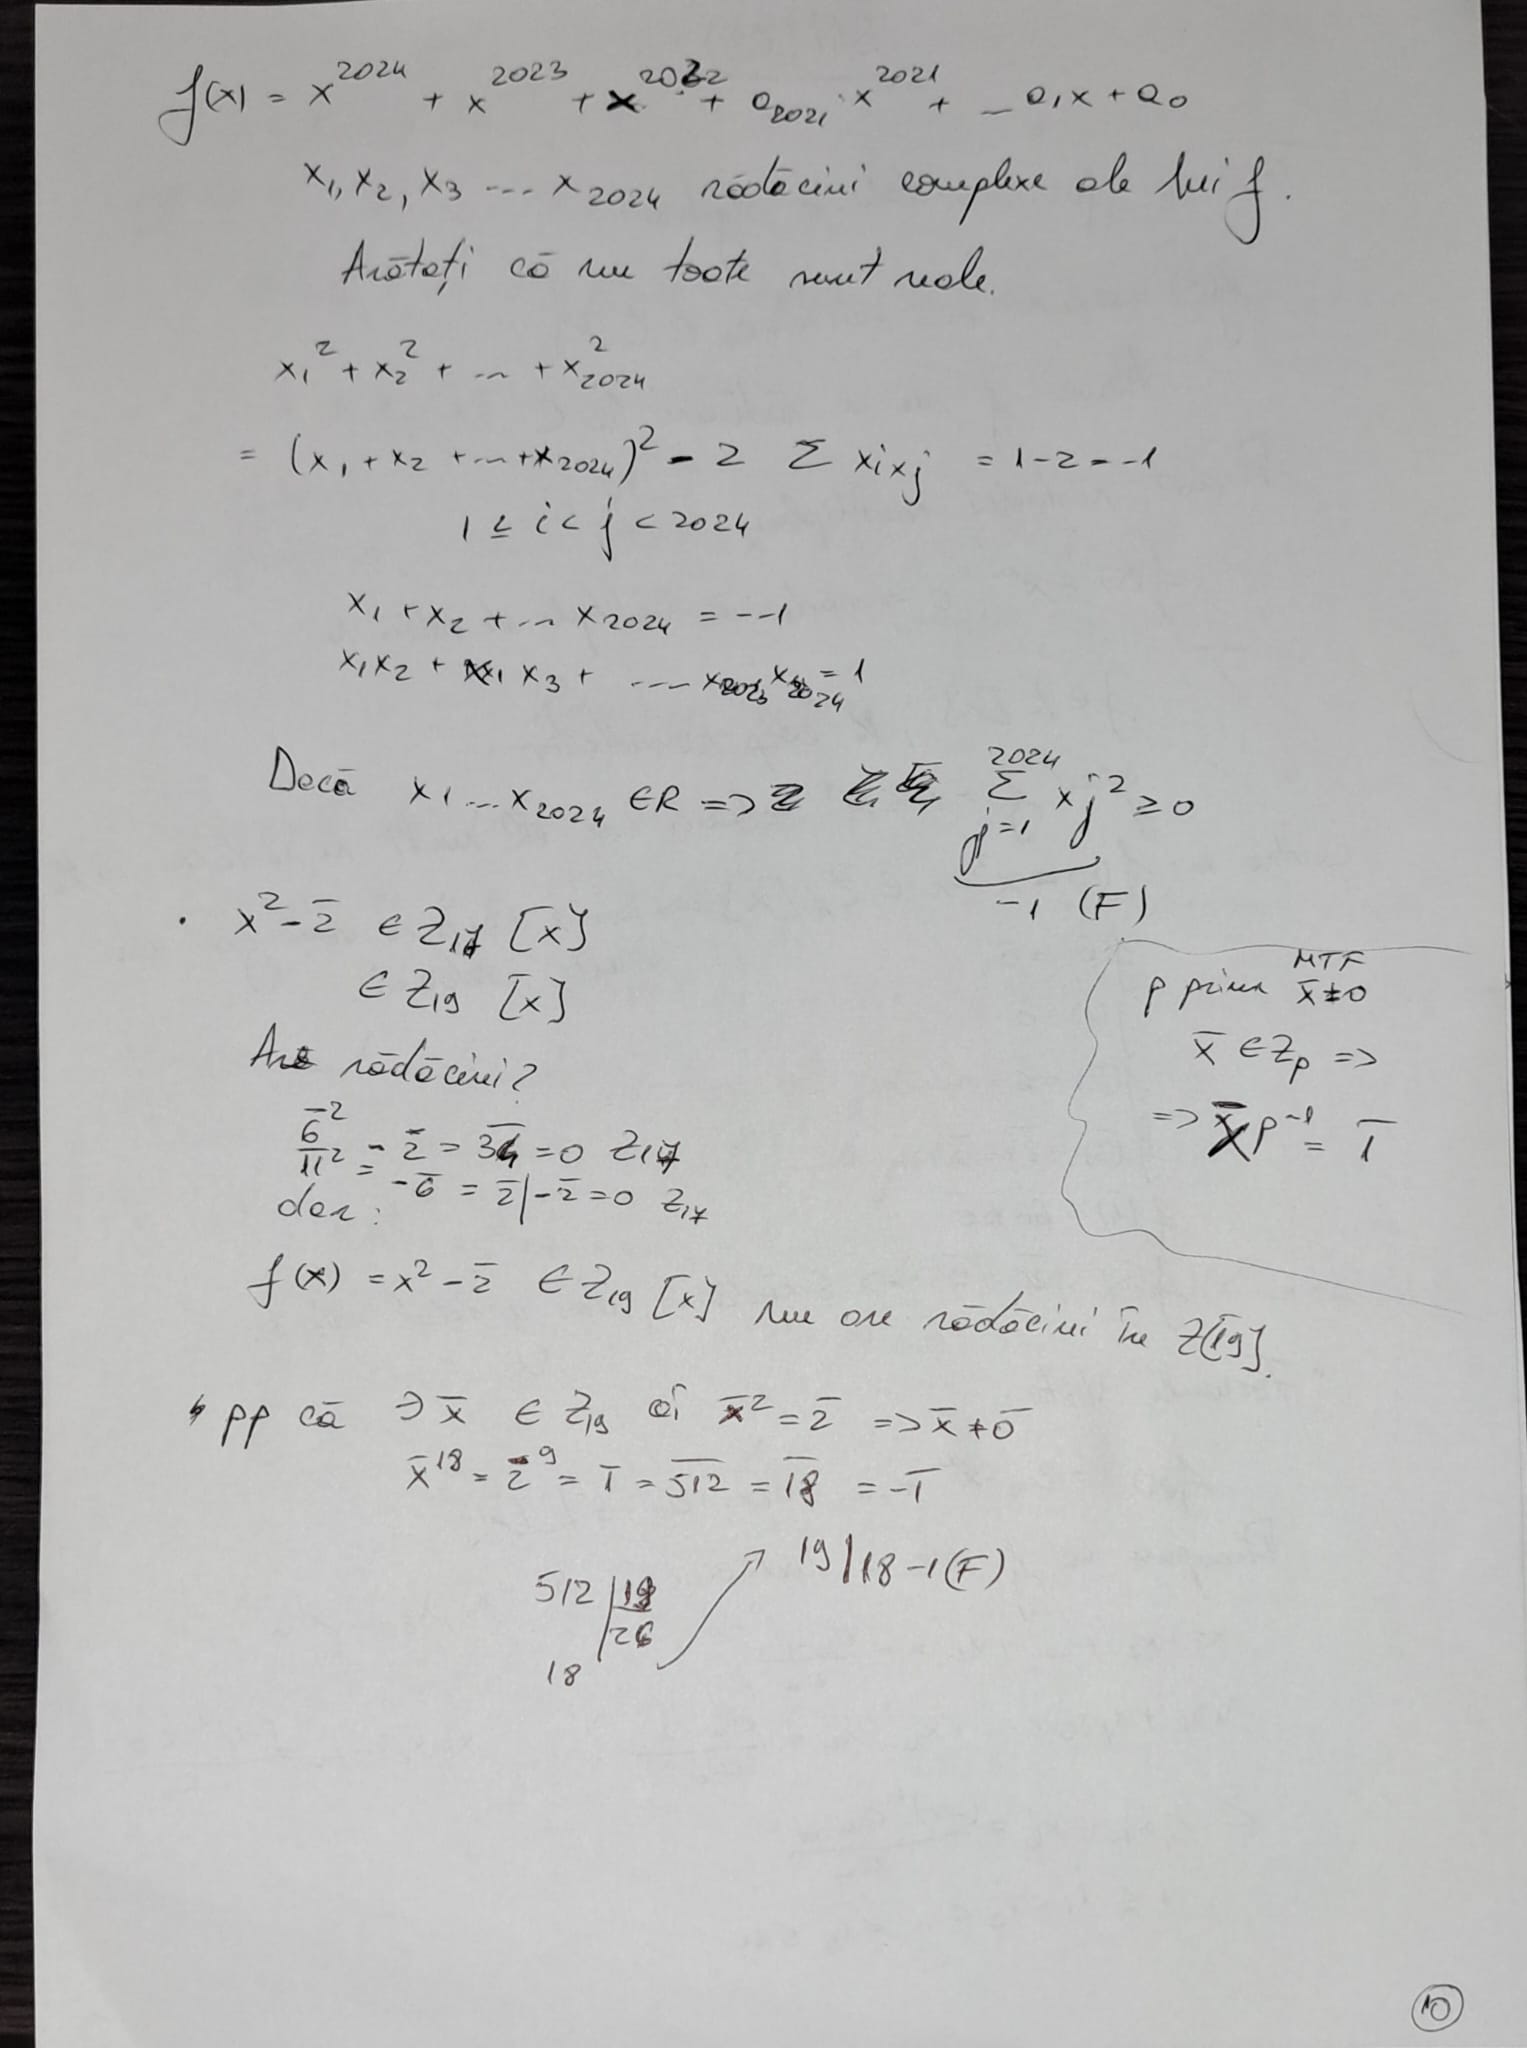 f(x) = x^2024 + x^2023 + x^2022 + a_2021 · x^2021 + ... a_1 x + a_0
x_1, x_2, x_3 ... x_2024 rădăcini complexe ale lui f.
Arătați că nu toate sunt reale.
x_1^2 + x_2^2 + ... + x_2024^2
= (x_1 + x_2 + ... + x_2024)^2 - 2 Σ x_i x_j = 1 - 2 = -1
1 ≤ i < j < 2024
x_1 + x_2 + ... x_2024 = -1
x_1 x_2 + x_1 x_3 + .... x_2023 x_2024 = 1
Dacă x_1 ... x_2024 ∈ R => Σ_{j=1}^{2024} x_j^2 ≥ 0
-1 (F)
· x^2 - 2̄ ∈ Z_17 [x]
∈ Z_19 [x]
Are rădăcini?
6̄^2 - 2̄ = 34̄ = 0 Z_17
11^2 = -6̄ = 2̄ | - 2̄ = 0 Z_17
dar:
f(x) = x^2 - 2̄ ∈ Z_19 [x] nu are rădăcini în Z[19].
MTF
p prim x̄ ≠ 0
x̄ ∈ Z_p =>
=> x̄^p-1 = 1̄
pp că ∃ x̄ ∈ Z_19 aî x̄^2 = 2̄ => x̄ ≠ 0̄
x̄^18 = 2̄^9 = 1̄ = 512̄ = 18̄ = -1̄
19 | 18 - 1 (F)
512 | 19
26
18
10